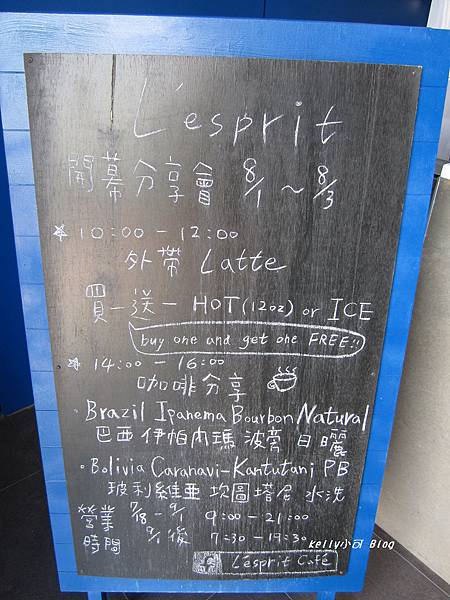 L'esprit
開幕分享會 8/1 ~ 8/3
☆ 10:00 - 12:00
外帶 Latte
買一送一 HOT(12oz) or ICE
buy one and get one FREE!!
☆ 14:00 - 16:00
咖啡分享
· Brazil Ipanema Bourbon Natural
巴西 伊帕內瑪 波旁 日曬
· Bolivia Caranavi-Kantutani PB
玻利維亞 坎圖塔尼 水洗
營業時間
7/18 - 9/1 9:00 - 21:00
9/1後 7:30 - 19:30
L'esprit Café
kelly小可 Blog